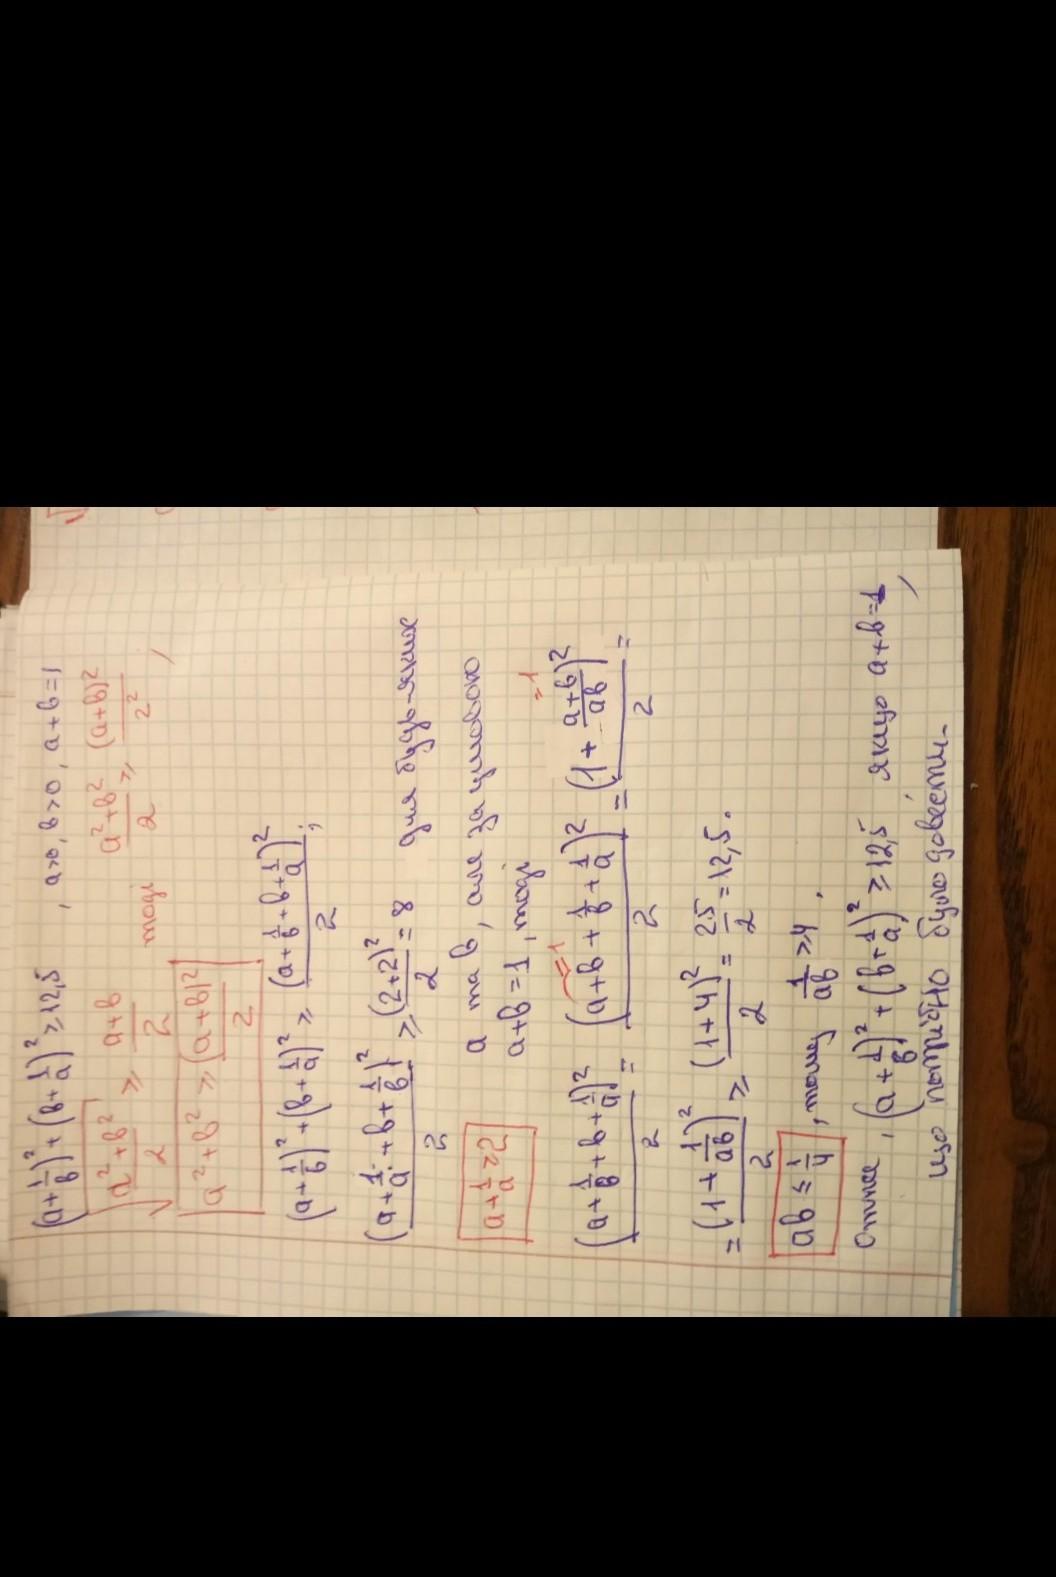 (a+1/в)² + (в+1/a)² ≥ 12,5 , a>0, в>0, a+в=1
√((a²+в²)/2) ≥ (a+в)/2 тоді (a²+в²)/2 ≥ (a+в)²/2² ,
a²+в² ≥ (a+в)²/2
(a+1/в)² + (в+1/a)² ≥ (a+1/в+в+1/a)²/2 ;
(a+1/a+в+1/в)²/2 ≥ (2+2)²/2 = 8 для будь-яких
a+1/a≥2 a та в, але за умовою
a+в=1, тоді
(a+1/в+в+1/a)²/2 = (a+в+1/в+1/a)²/2 = (1+(a+в)/aв)²/2 =
=1 =1
= (1+1/aв)²/2 ≥ (1+4)²/2 = 25/2 = 12,5.
aв ≤ 1/4 , тому 1/aв ≥ 4 .
Отже , (a+1/в)² + (в+1/a)² ≥ 12,5 якщо a+в=1 ,
що потрібно було довести.